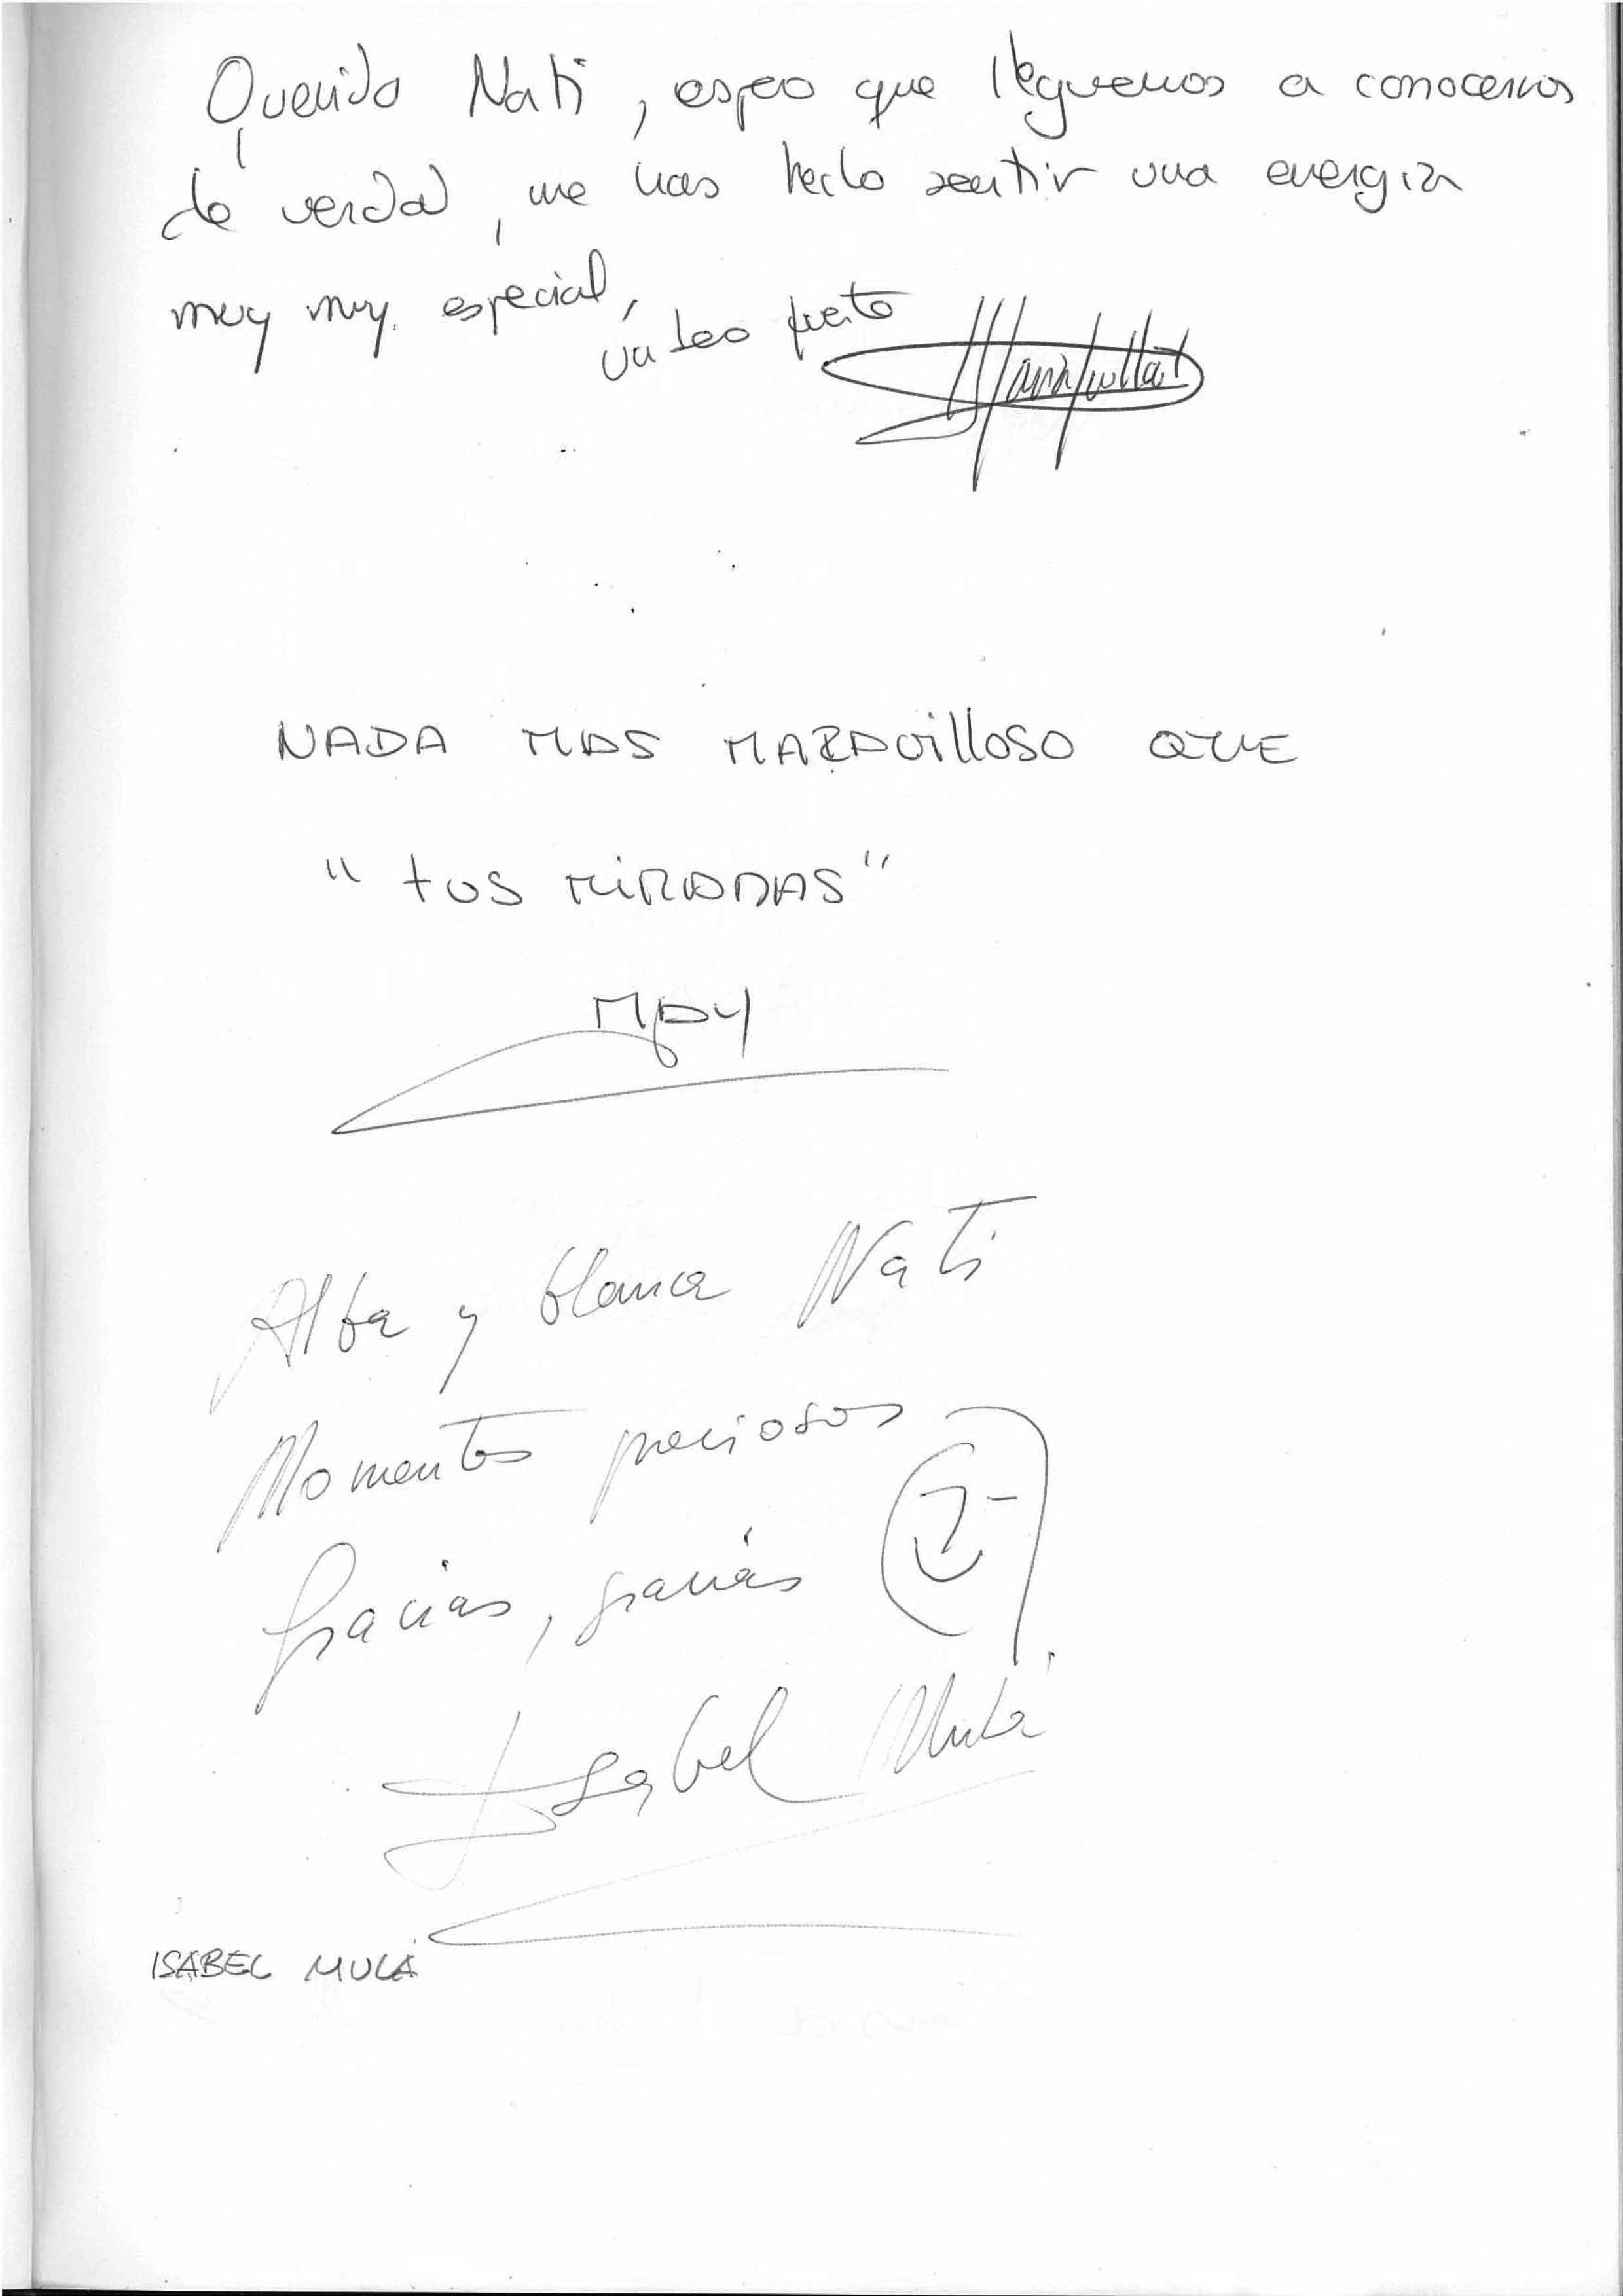 Querida Nati, espero que lleguemos a conocernos
de verdad, me has hecho sentir una energía
muy muy especial,
un beso fuerte
NADA MAS MARAVilloso QUE
"tus MiRADAS"
MAY
Alba y blanca Nati
Momentos preciosos
Gracias, gracias
Isabel Mulá
ISABEL MULÁ